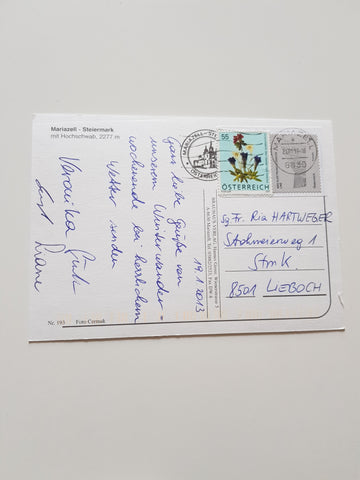 Mariazell - Steiermark
mit Hochschwab, 2277 m
19.1.2013
Ganz liebe Grüße von
unserem Winterwander-
wochenende bei herrlichem
Wetter senden
Veronika
und
Nr. 193 Foto Cermak
55
ÖSTERREICH
Sg. Fr. Ria HARTWEBER
1
Stmk
8501 LIEBOCH